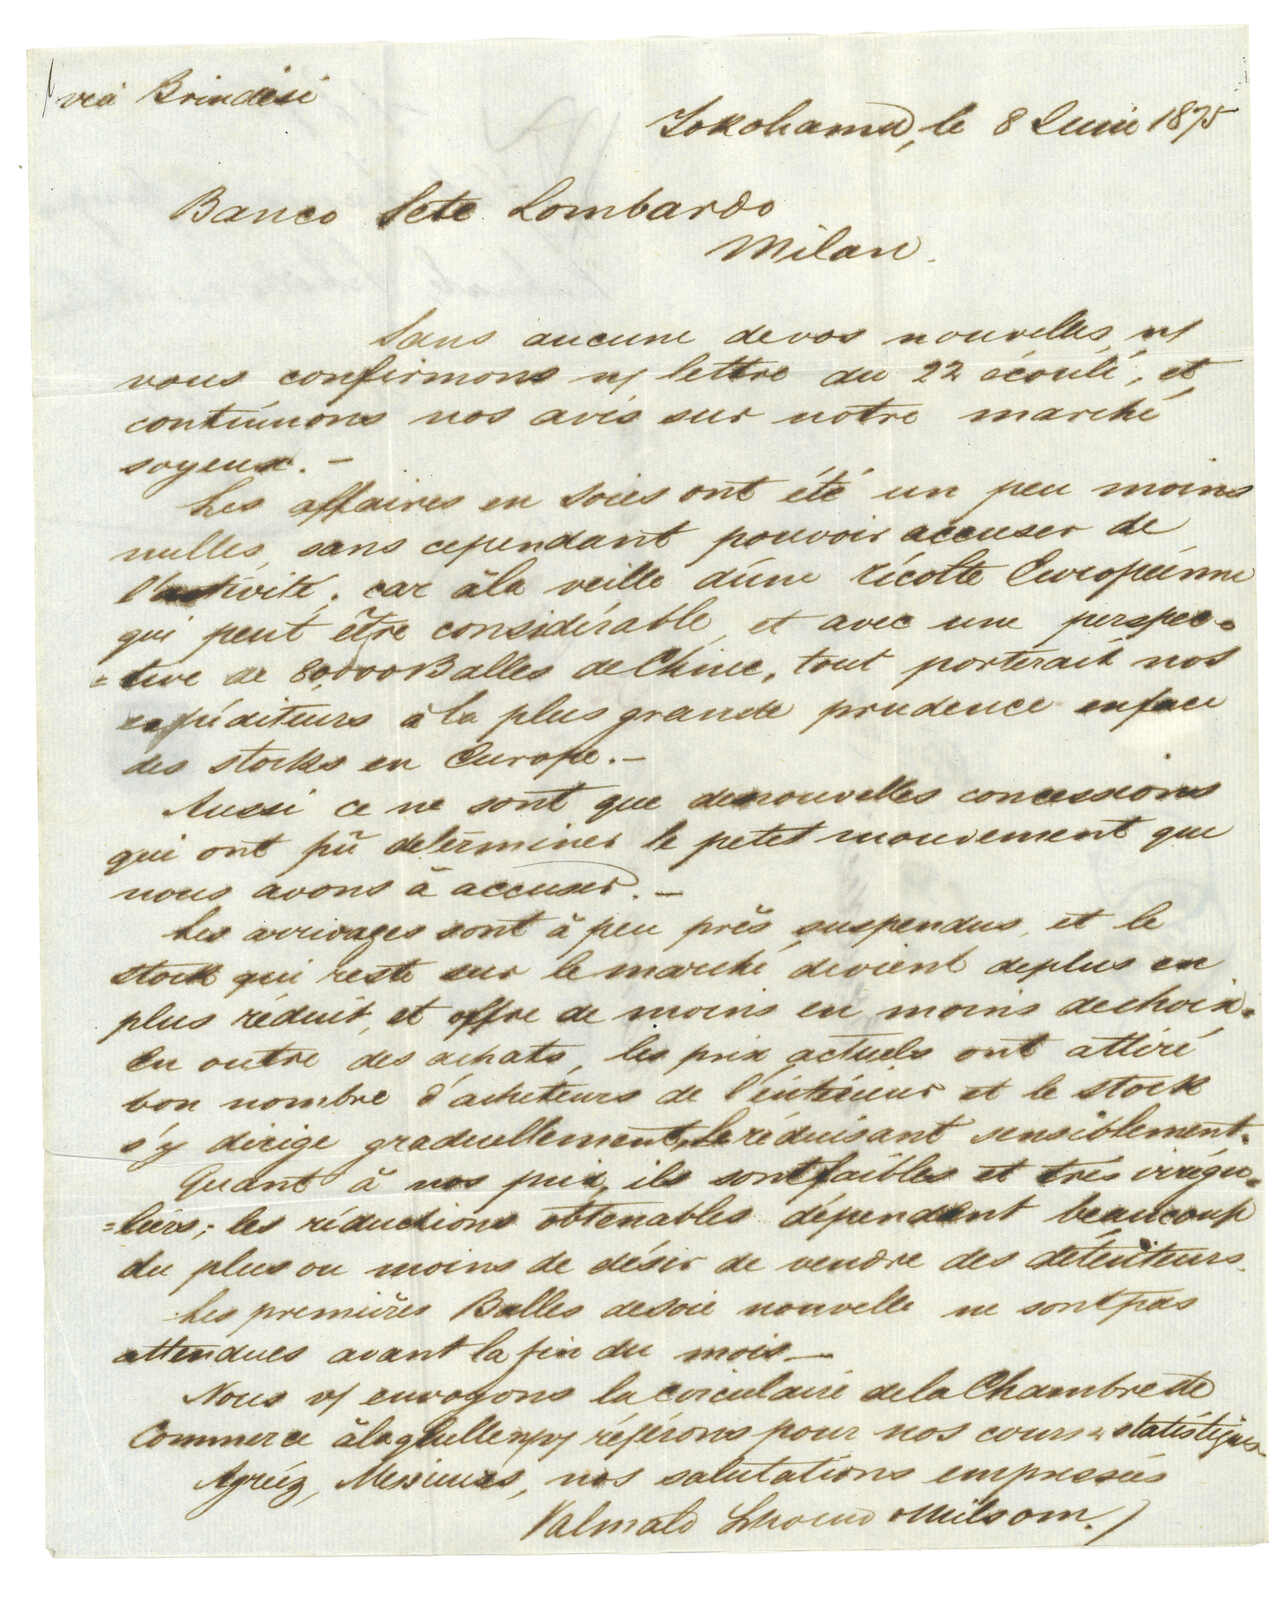 via Brindisi
Yokohama, le 8 Juin 1875
Banco Sete Lombardo
Milan.
Sans aucune de vos nouvelles, n/
vous confirmons n/ lettre du 22 écoulé, et
continuons nos avis sur notre marché
soyeux. —
Les affaires en Soies ont été un peu moins
nulles, sans cependant pouvoir accuser de
l'activité, car à la veille d'une récolte Européenne
qui peut être considérable, et avec une perspec=
=tive de 80000 Balles de Chine, tout porterait nos
expéditeurs à la plus grande prudence en face
des stocks en Europe. —
Aussi ce ne sont que de nouvelles concessions
qui ont pû déterminer le petit mouvement que
nous avons à accuser. —
Les arrivages sont à peu près suspendus, et le
stock qui reste sur le marché devient de plus en
plus réduit, et offre de moins en moins de choix.
En outre des achats, les prix actuels ont attiré
bon nombre d'acheteurs de l'intérieur et le stock
s'y dirige graduellement, le réduisant sensiblement.
Quant à nos prix, ils sont faibles et très irrégu=
=liers; les réductions obtenables dépendent beaucoup
du plus ou moins de désir de vendre des détenteurs.
Les premières Balles de soie nouvelle ne sont pas
attendues avant la fin du mois —
Nous v/ envoyons la circulaire de la Chambre de
Commerce à laquelle n/ v/ référons pour nos cours & statistiques
Agréez, Messieurs, nos salutations empressées
Milsom.